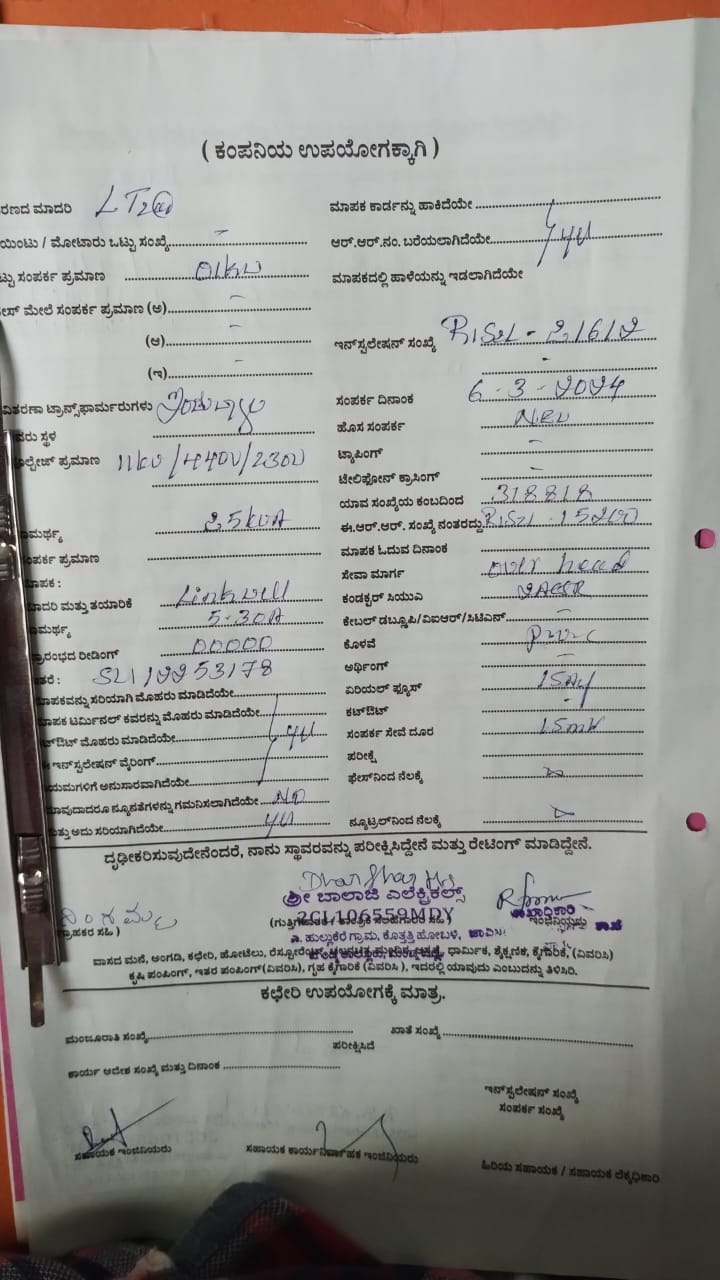 ( ಕಂಪನಿಯ ಉಪಯೋಗಕ್ಕಾಗಿ )
ರಣದ ಮಾದರಿ LT2(a)
ಯಿಂಟು / ಮೋಟಾರು ಒಟ್ಟು ಸಂಖ್ಯೆ -
ಟ್ಟು ಸಂಪರ್ಕ ಪ್ರಮಾಣ 01KW
ೇಸ್ ಮೇಲೆ ಸಂಪರ್ಕ ಪ್ರಮಾಣ (ಅ) -
(ಆ) -
(ಇ) -
ವಿತರಣಾ ಟ್ರಾನ್ಸ್‌ಫಾರ್ಮರುಗಳು
ವರು ಸ್ಥಳ
ಲ್ಟೇಜ್ ಪ್ರಮಾಣ 11KV/440V/230V
ಾಮರ್ಥ್ಯ 25KVA
ಂಪರ್ಕ ಪ್ರಮಾಣ
ಮಾಪಕ :
ಾದರಿ ಮತ್ತು ತಯಾರಿಕೆ Linkwell
ಾಮರ್ಥ್ಯ 5-30A
ಪ್ರಾರಂಭದ ರೀಡಿಂಗ್ 00000
ತರೆ :
ಮಾಪಕವನ್ನು ಸರಿಯಾಗಿ ಮೊಹರು ಮಾಡಿದೆಯೇ
ಮಾಪಕ ಟರ್ಮಿನಲ್ ಕವರನ್ನು ಮೊಹರು ಮಾಡಿದೆಯೇ
ಟ್‌ಔಟ್ ಮೊಹರು ಮಾಡಿದೆಯೇ yes
ಇನ್‌ಸ್ಪಲೇಷನ್ ವೈರಿಂಗ್
ಯಮಗಳಿಗೆ ಅನುಸಾರವಾಗಿದೆಯೇ
ಯಾವುದಾದರೂ ನ್ಯೂನತೆಗಳನ್ನು ಗಮನಿಸಲಾಗಿದೆಯೇ NO
ಮತ್ತು ಅದು ಸರಿಯಾಗಿದೆಯೇ yes
ಮಾಪಕ ಕಾರ್ಡನ್ನು ಹಾಕಿದೆಯೇ
ಆರ್.ಆರ್.ನಂ. ಬರೆಯಲಾಗಿದೆಯೇ yes
ಮಾಪಕದಲ್ಲಿ ಹಾಳೆಯನ್ನು ಇಡಲಾಗಿದೆಯೇ
ಇನ್‌ಸ್ಪಲೇಷನ್ ಸಂಖ್ಯೆ
ಸಂಪರ್ಕ ದಿನಾಂಕ 6-3-2024
ಹೊಸ ಸಂಪರ್ಕ NEW
ಟ್ಯಾಪಿಂಗ್ -
ಟೇಲಿಫೋನ್ ಕ್ರಾಸಿಂಗ್ -
ಯಾವ ಸಂಖ್ಯೆಯ ಕಂಬದಿಂದ 318818
ಈ.ಆರ್.ಆರ್. ಸಂಖ್ಯೆ ನಂತರದ್ದು
ಮಾಪಕ ಓದುವ ದಿನಾಂಕ
ಸೇವಾ ಮಾರ್ಗ over head
ಕಂಡಕ್ಟರ್ ಸಿಯುಎ
ಕೇಬಲ್ ಡಬ್ಲೂಪಿ/ವಿಐಆರ್/ಸಿಟಿಎಸ್ -
ಕೊಳವೆ
ಅರ್ಥಿಂಗ್ -
ಏರಿಯಲ್ ಫ್ಯೂಸ್
ಕಟ್‌ಔಟ್ -
ಸಂಪರ್ಕ ಸೇವೆ ದೂರ
ಪರೀಕ್ಷೆ
ಫೇಸ್‌ನಿಂದ ನೆಲಕ್ಕೆ
ನ್ಯೂಟ್ರಲ್‌ನಿಂದ ನೆಲಕ್ಕೆ
ದೃಢೀಕರಿಸುವುದೇನೆಂದರೆ, ನಾನು ಸ್ಥಾವರವನ್ನು ಪರೀಕ್ಷಿಸಿದ್ದೇನೆ ಮತ್ತು ರೇಟಿಂಗ್ ಮಾಡಿದ್ದೇನೆ.
ಶ್ರೀ ಬಾಲಾಜಿ ಎಲೆಕ್ಟ್ರಿಕಲ್ಸ್
2CL106559MDY
ಗ್ರಾಹಕರ ಸಹಿ )
ಇಂಜಿನಿಯರು
ಎ. ಹುಲ್ಲುಕೆರೆ ಗ್ರಾಮ, ಕೊತ್ತತ್ತಿ ಹೋಬಳಿ,
ವಾಸದ ಮನೆ, ಅಂಗಡಿ, ಕಛೇರಿ, ಹೋಟೆಲು, ಧಾರ್ಮಿಕ, ಶೈಕ್ಷಣಿಕ, ಕೈಗಾರಿಕೆ, (ವಿವರಿಸಿ)
ಕೃಷಿ ಪಂಪಿಂಗ್, ಇತರ ಪಂಪಿಂಗ್(ವಿವರಿಸಿ), ಗೃಹ ಕೈಗಾರಿಕೆ (ವಿವರಿಸಿ ), ಇದರಲ್ಲಿ ಯಾವುದು ಎಂಬುದನ್ನು ತಿಳಿಸಿರಿ.
ಕಛೇರಿ ಉಪಯೋಗಕ್ಕೆ ಮಾತ್ರ.
ಮಂಜೂರಾತಿ ಸಂಖ್ಯೆ ಖಾತೆ ಸಂಖ್ಯೆ
ಪರೀಕ್ಷಿಸಿದೆ
ಕಾರ್ಯ ಆದೇಶ ಸಂಖ್ಯೆ ಮತ್ತು ದಿನಾಂಕ
ಇನ್‌ಸ್ಪಲೇಷನ್ ಸಂಖ್ಯೆ
ಸಂಪರ್ಕ ಸಂಖ್ಯೆ
ಸಹಾಯಕ ಇಂಜಿನಿಯರು ಸಹಾಯಕ ಕಾರ್ಯನಿರ್ವಾಹಕ ಇಂಜಿನಿಯರು ಹಿರಿಯ ಸಹಾಯಕ / ಸಹಾಯಕ ಲೆಕ್ಕಧಿಕಾರಿ